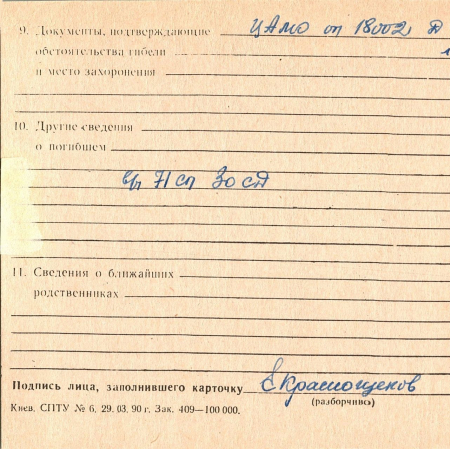 9. Документы, подтверждающие ЦАМО оп 18002, д
обстоятельства гибели
и место захоронения
10. Другие сведения
о погибшем
в/ч 71 сп 30 сд
11. Сведения о ближайших
родственниках
Подпись лица, заполнившего карточку Е Краснощеков
(разборчиво)
Киев. СПТУ № 6, 29. 03. 90 г. Зак. 409—100 000.